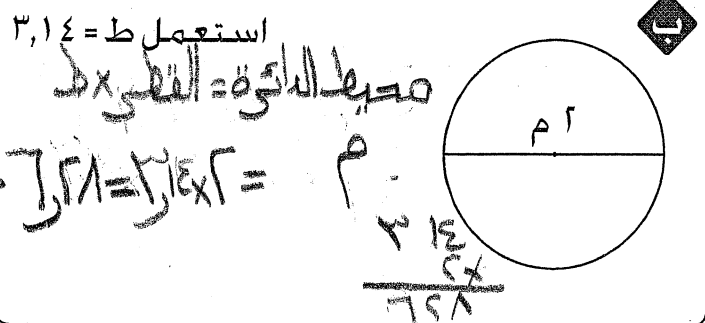 ب
استعمل ط = ٣,١٤
٢ م
محيط الدائرة = القطر × ط
م = ٢ × ٣,١٤ = ٦,٢٨
٣ ١٤
٢ ×
٦٢٨